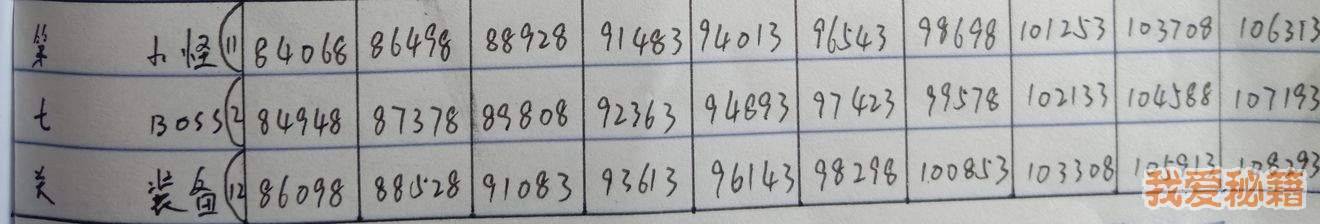 第 小怪(11) 84068 86498 88928 91483 94013 96543 98698 101253 103708 106313
七 BOSS(2) 84948 87378 89808 92363 94893 97423 99578 102133 104588 107193
关 装备(12) 86098 88528 91083 93613 96143 98298 100853 103308 105913 108293
我爱秘籍